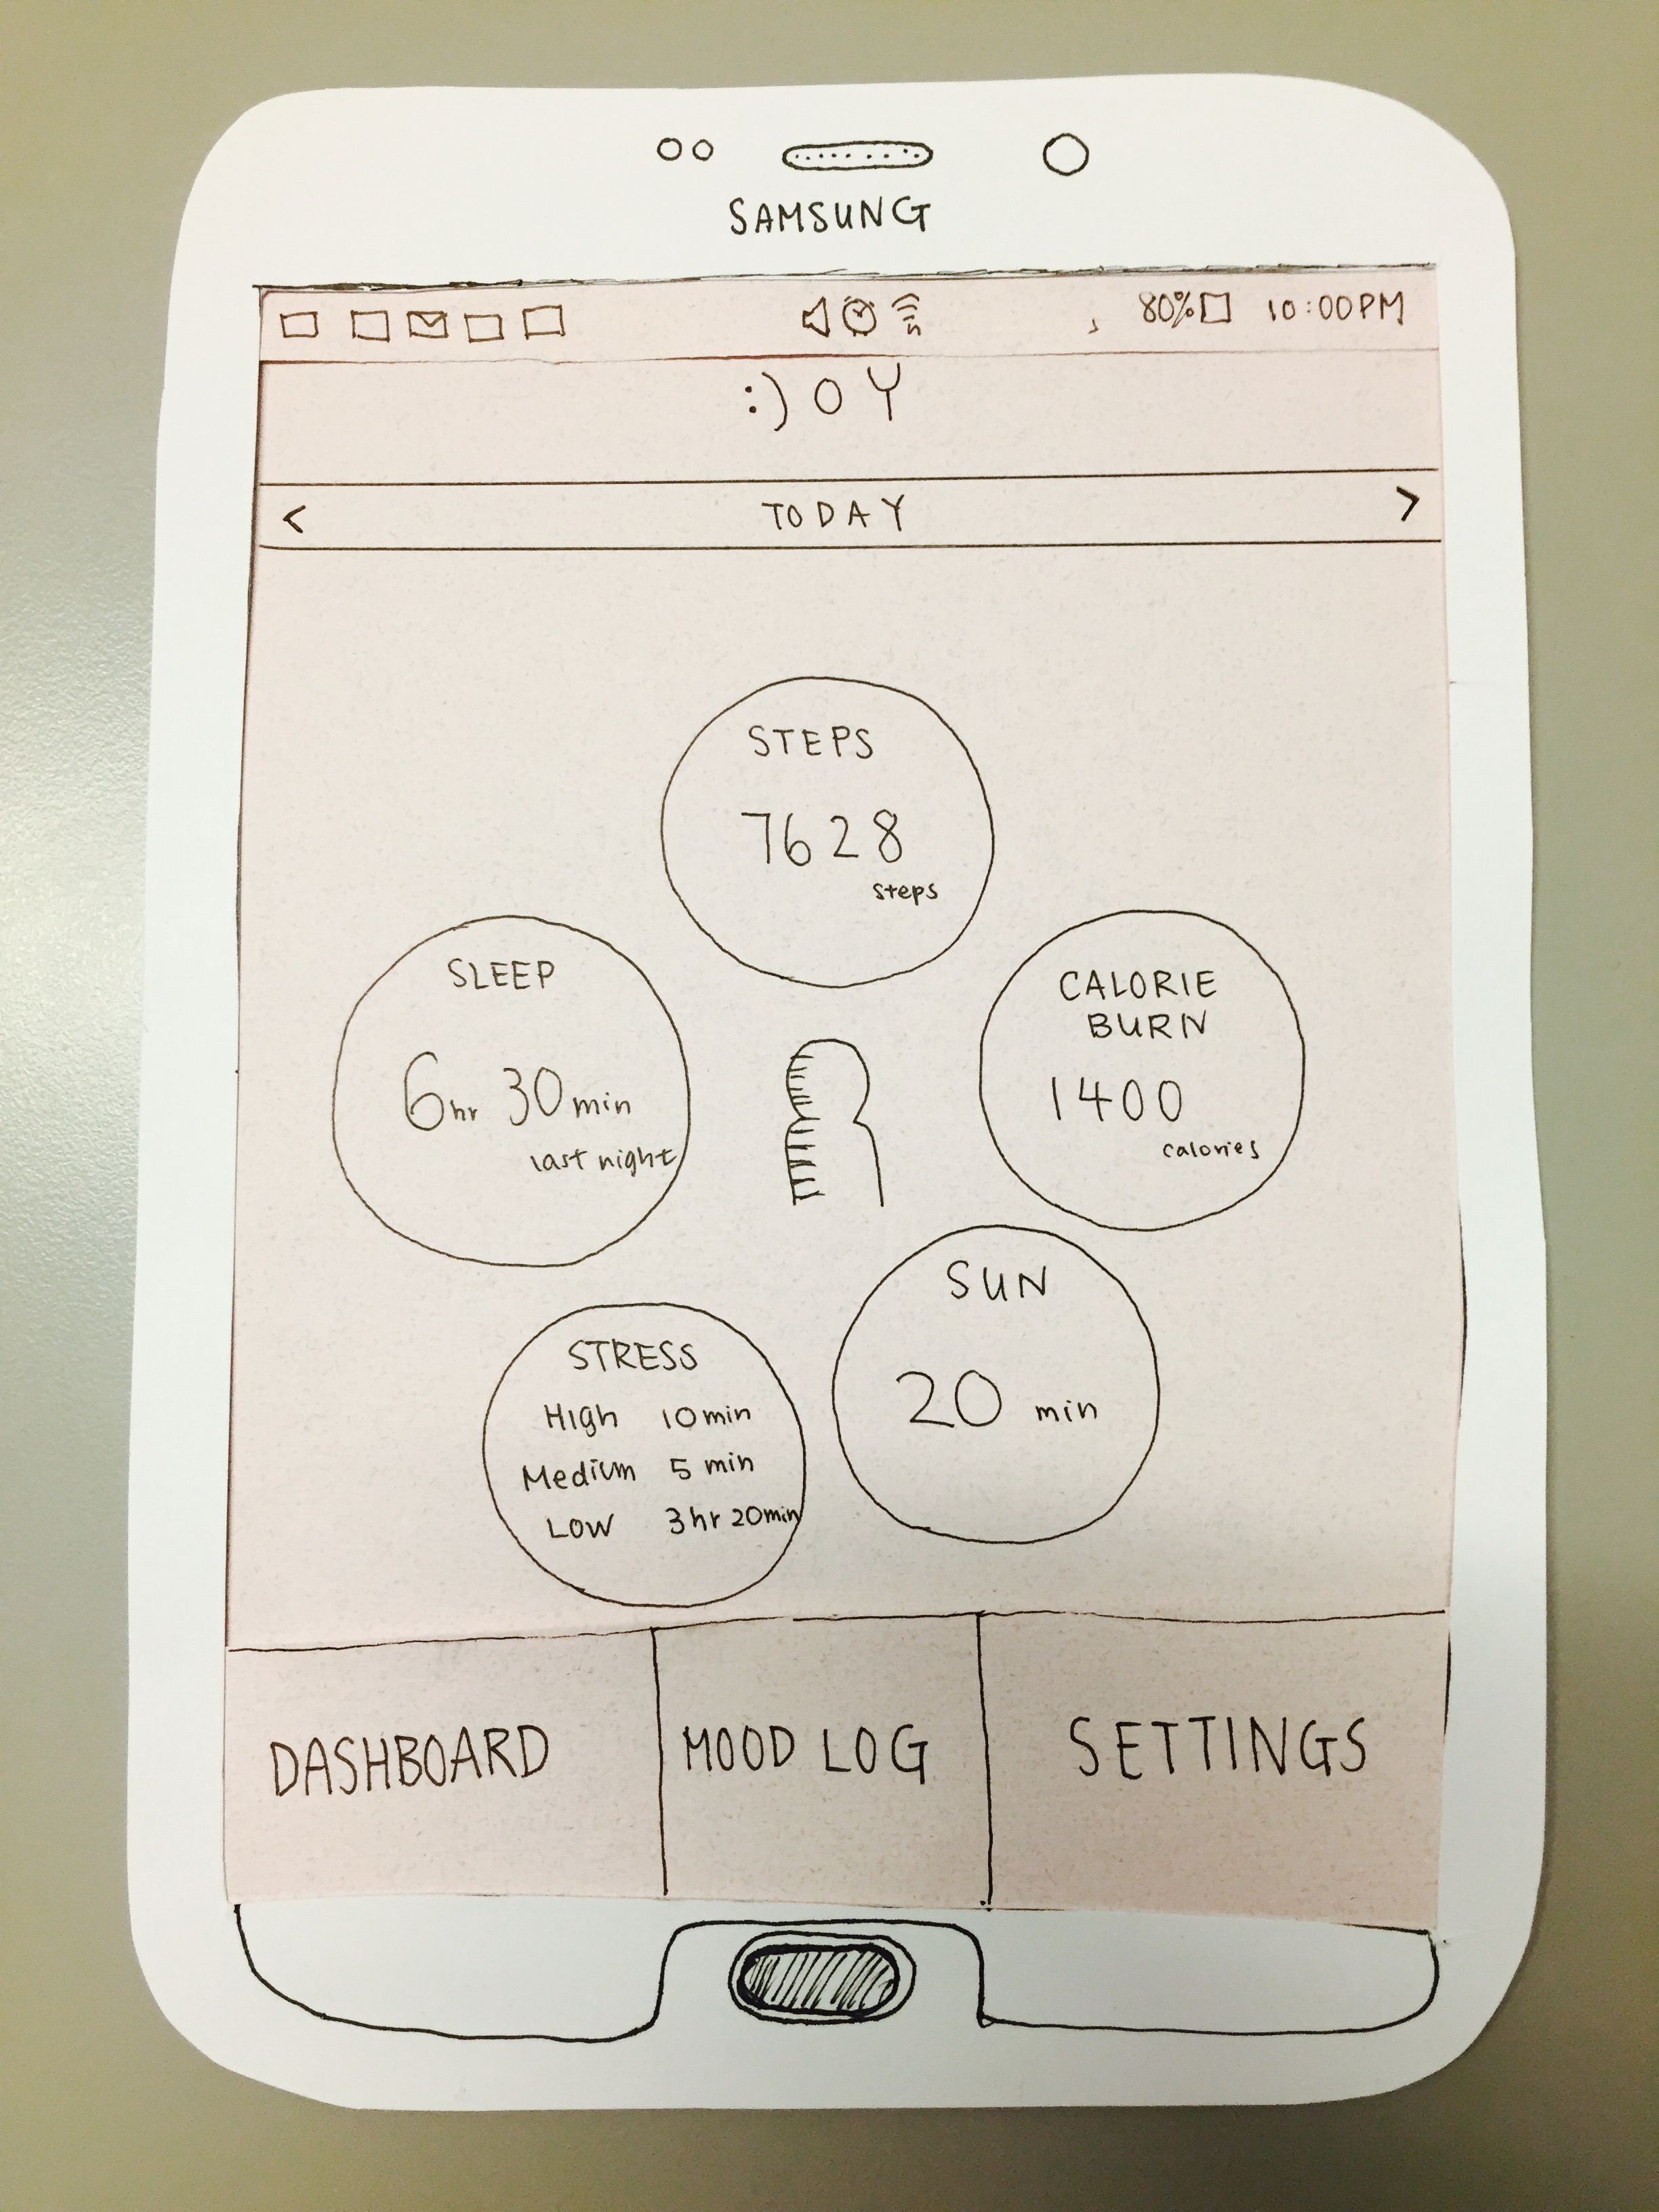 SAMSUNG
80% 10:00PM
:) O Y
< TODAY >
STEPS
7628
steps
SLEEP
6hr 30min
last night
CALORIE
BURN
1400
calories
SUN
20 min
STRESS
High 10min
Medium 5 min
Low 3hr 20min
DASHBOARD MOOD LOG SETTINGS